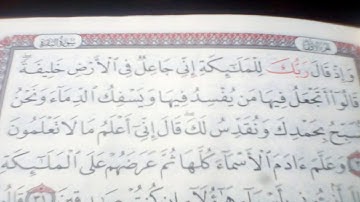 وَإِذْ قَالَ رَبُّكَ لِلْمَلَٰٓئِكَةِ إِنِّي جَاعِلٌ فِي الْأَرْضِ خَلِيفَةً
قَالُوٓا أَتَجْعَلُ فِيهَا مَن يُفْسِدُ فِيهَا وَيَسْفِكُ الدِّمَآءَ وَنَحْنُ
نُسَبِّحُ بِحَمْدِكَ وَنُقَدِّسُ لَكَ قَالَ إِنِّيٓ أَعْلَمُ مَا لَا تَعْلَمُونَ
وَعَلَّمَ ءَادَمَ الْأَسْمَآءَ كُلَّهَا ثُمَّ عَرَضَهُمْ عَلَى الْمَلَٰٓئِكَةِ